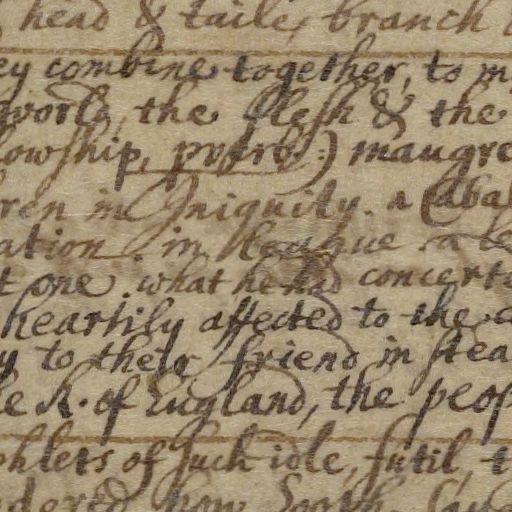 head & taile, branch
ey combine together, to m
world, the flesh & the
lowship, prorb:) maugre
ren in Iniquity. a Cabal
ation. in league
t one what he had concert
heartily affected to the
y to their friend in stea
le K. of England, the peop
phlets of such idle, futil, t
dered how Sooth